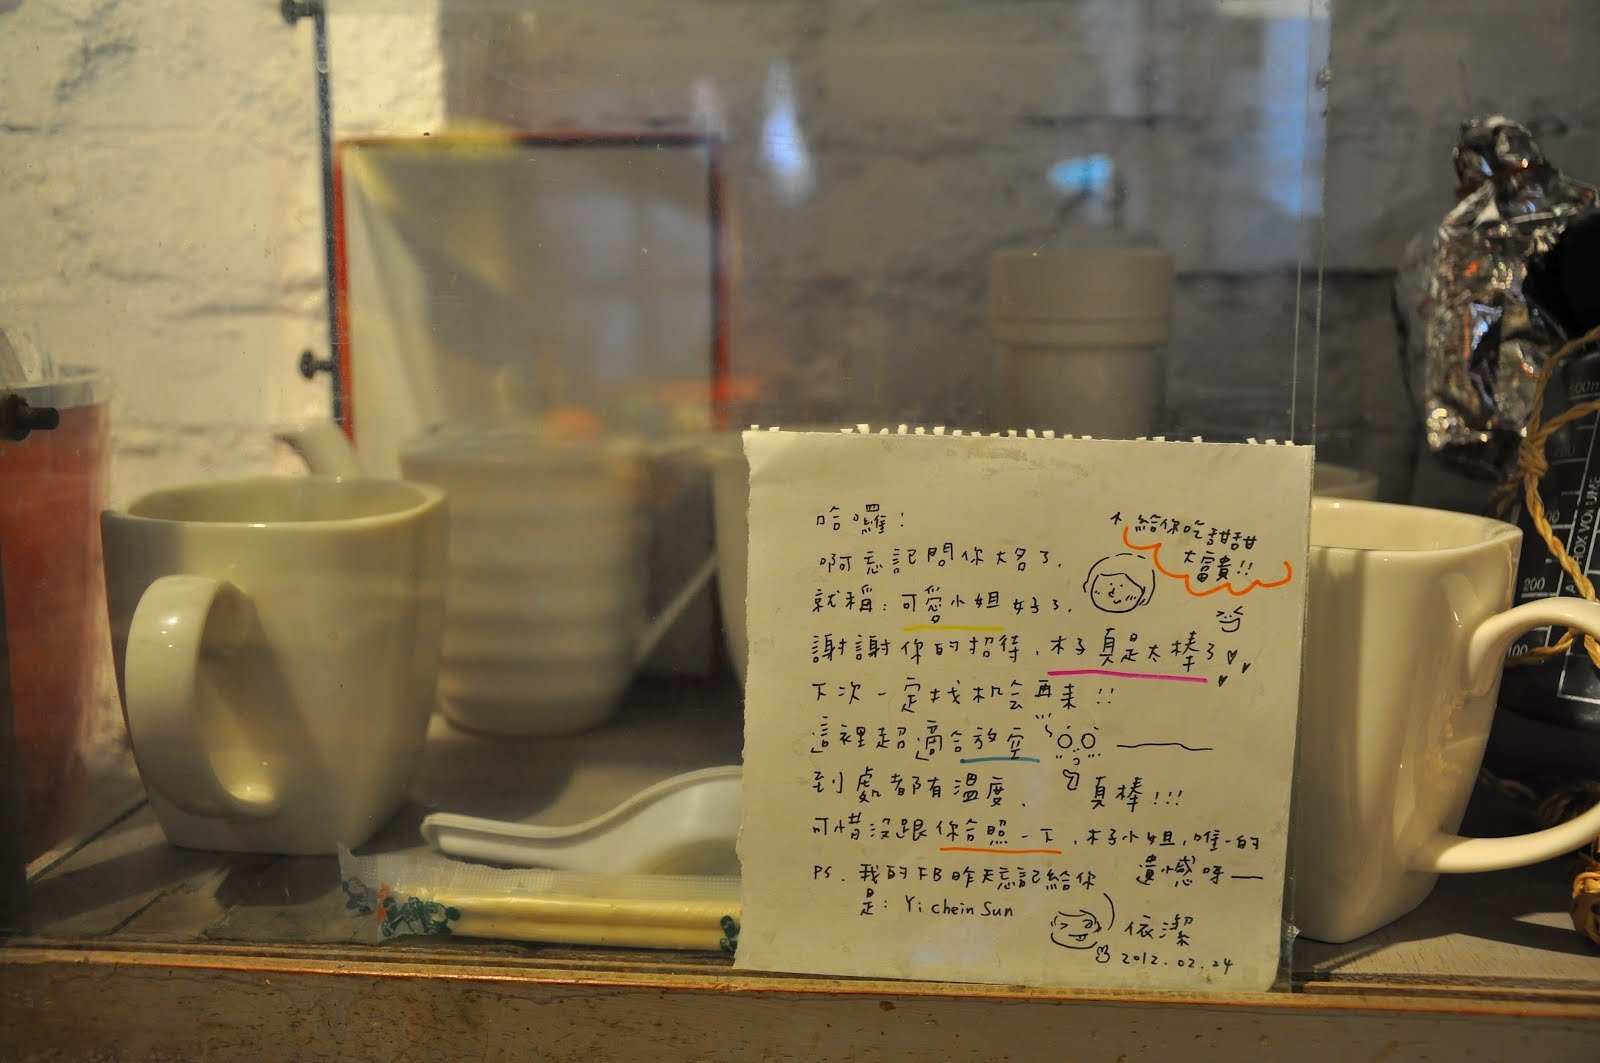 哈囉!
啊忘記問你大名了.
就稱:可愛小姐好了.
給你吃甜甜
大富貴!!
謝謝你的招待.木子真是太棒了
下次一定找机会再来!!
這裡超適合放空
到處都有溫度. 真棒!!!
可惜沒跟你合照一下.木子小姐,唯一的
遺憾呀
PS.我的FB昨天忘記給你
是:Yi chein Sun
依潔
2012.02.24
200
100